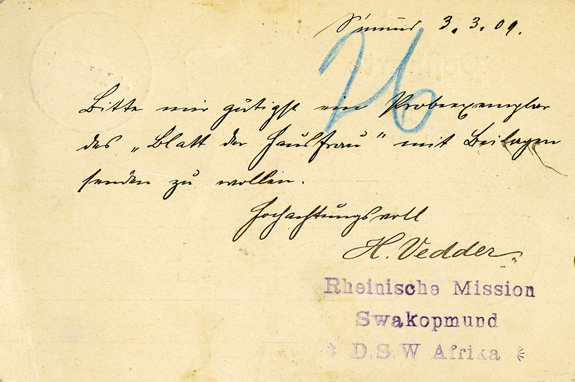 S'mund 3.3.09.
26
Bitte mir gütigst ein Probeexemplar
des „Blatt der Hausfrau" mit Beilagen
senden zu wollen.
Hochachtungsvoll
H. Vedder.
Rheinische Mission
Swakopmund
D.S.W Afrika